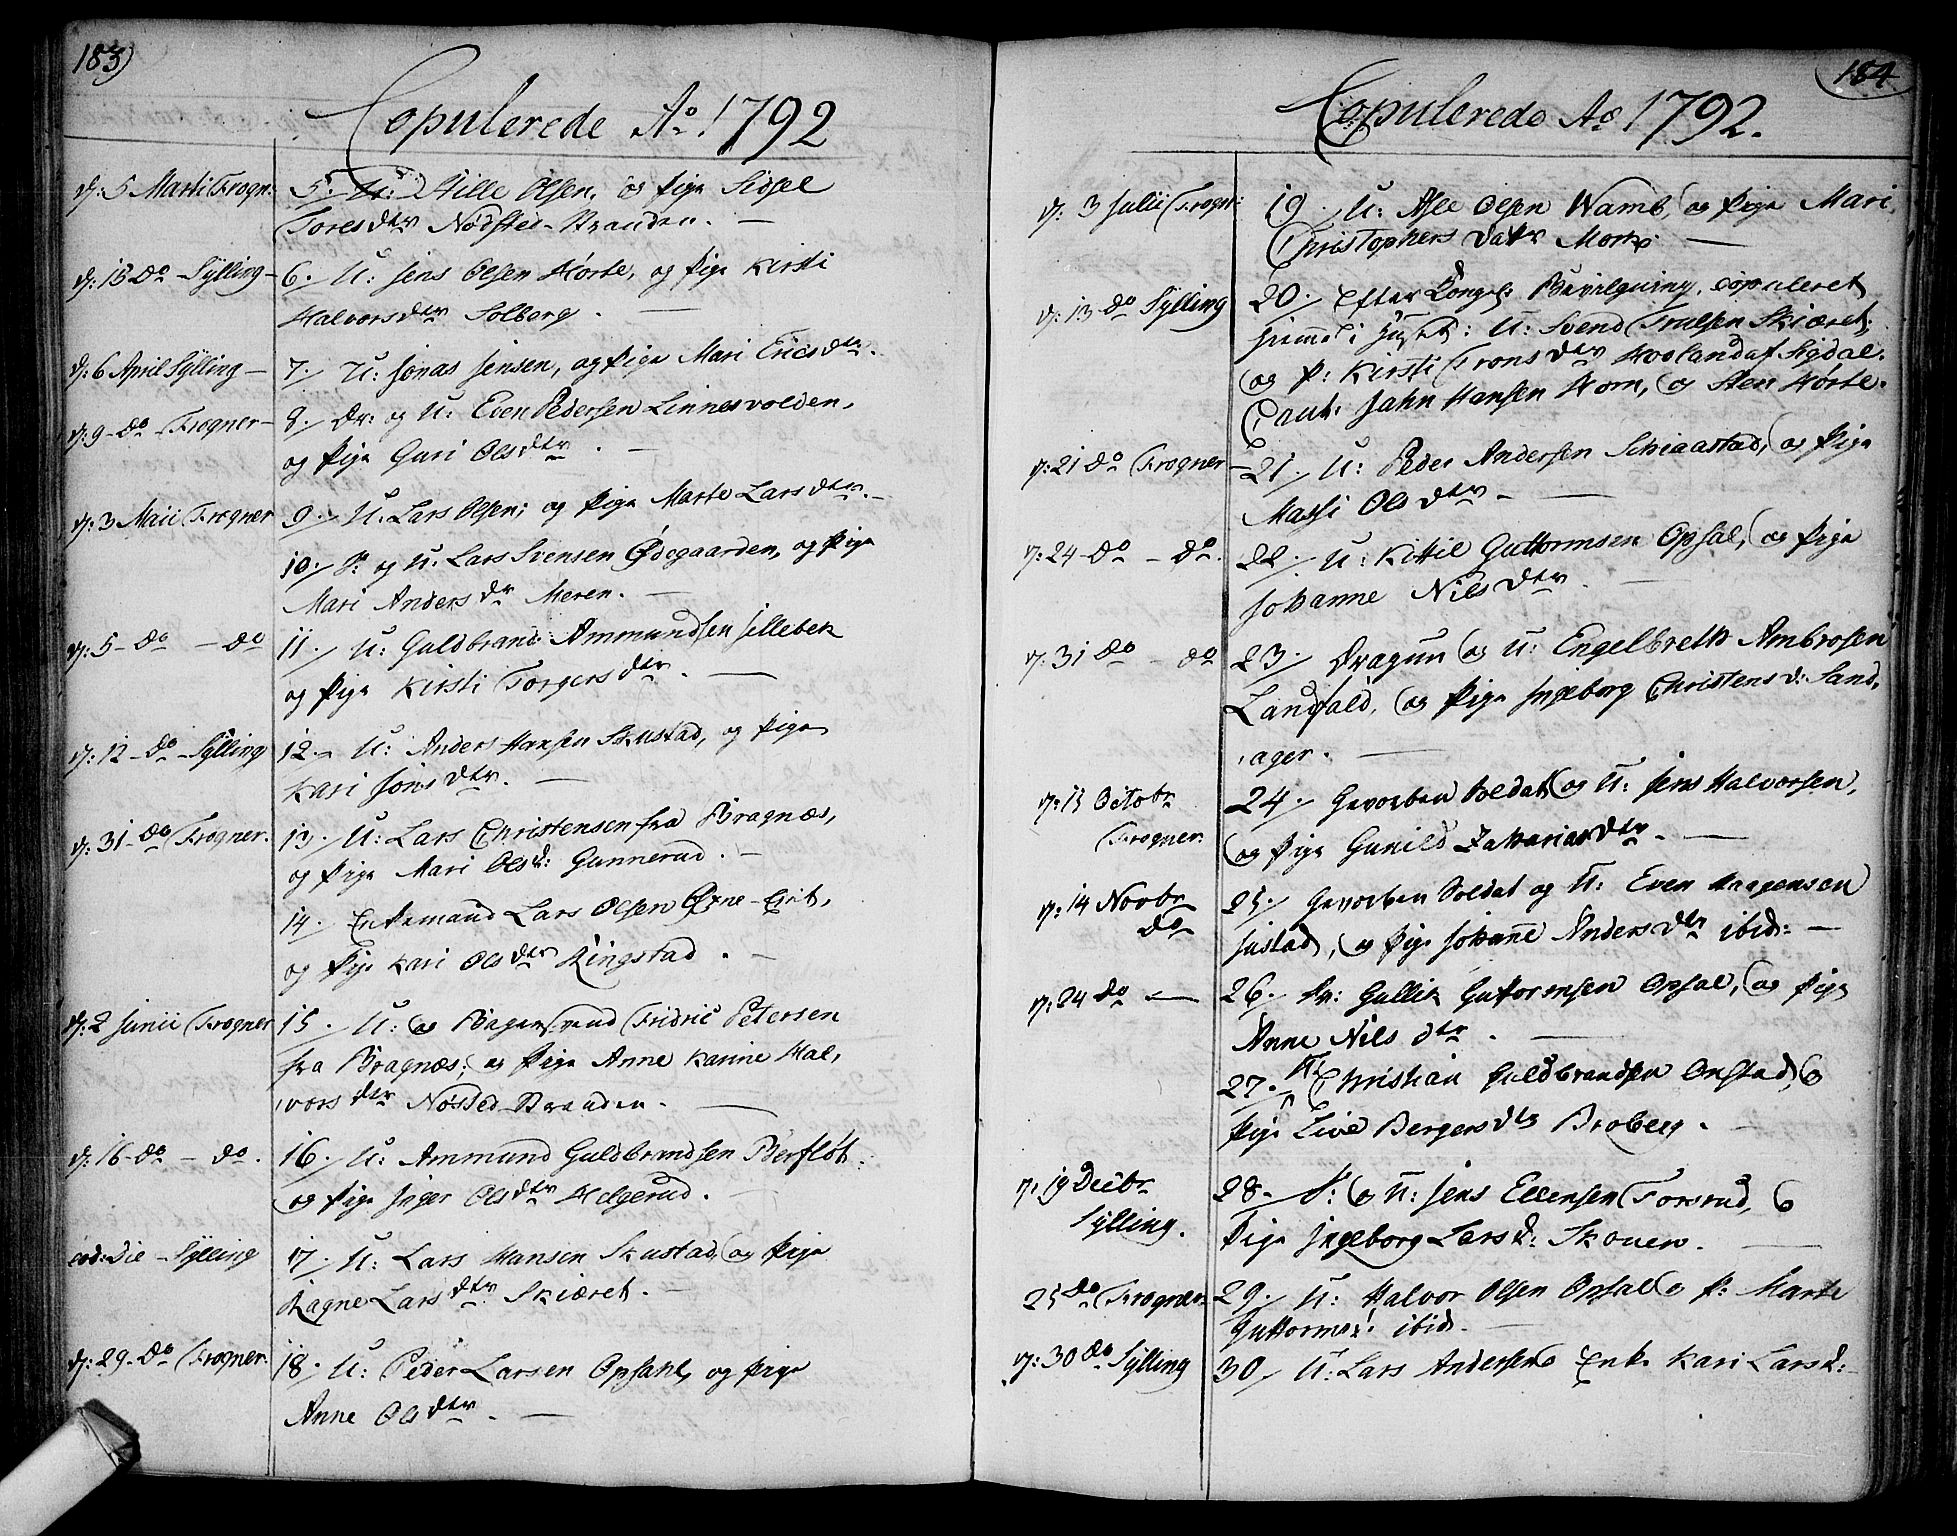 183)
Copulerede Ao. 1792
d: 5 Martii Frogn: 5. U: Hille Olsen, og Pige Sidsel
Toresdtr Nødsted-Stranden. —
d: 18 do - Sylling - 6. U: Jens Olsen Hørte, og Pige Kirsti
Halvorsdtr Solberg. —
d: 6 April Sylling — 7. U: Jonas Jensen, og Pige Mari Ericsdtr.
d: 9 - do - Frogner - 8. Dr: og U: Even Pedersen Linnesvolden,
og Pige Guri Olsdtr. —
d: 3 Maii Frogner 9. U: Lars Olsen; og Pige Marte Larsdtr. —
10. S: og U: Lars Svensen Ødegaarden, og Pige
Mari Andersdr Meren. —
d: 5 - do - do 11. U: Guldbrand Ammundsen Jellebek
og Pige Kirsti Torgersdtr. —
d: 12 - do - Sylling 12. U: Anders Hansen Skustad, og Pige
Kari Jonsdtr. —
d: 31 - do Frogner. 13. U: Lars Christensen fra Bragnæs,
og Pige Mari Olsd: Gunnerud. —
14. Enkemand Lars Olsen Øvne-Eiet,
og Pige Kari Olsdtr Ringstad. —
d: 2 Junii Frogner 15. U: og Bager Svend Fridric Petersen
fra Bragnæs; og Pige Anne Karine Hal,
vorsdtr Nøsted-Stranden. —
d: 16 - do - do. 16. U: Ammund Guldbrandsen Berfløt:
og Pige Inger Olsdtr Helgerud. —
eod: Die - Sylling 17. U: Lars Hansen Skustad, og Pige
Ragne Larsdtr Skiæret. —
d: 29 - do Frogner. 18. U: Peder Larsen Opsahl, og Pige
Anne Olsdtr. —
184
Copulerede Ao 1792.
d: 3 Julii Frogn: 19. U: Asle Olsen Wamb, og Pige Mari
Christophers Datr Mork. —
d: 13 do Sylling 20. Efter Kongel: Bevilgning, copuleret
hiemme i Huset: U: Svend Trulsen Skiæret,
og P: Kirsti Tronsdtr Hovland af Sigdal.
Caut: Jahn Hansen Horn, og Sten Hørte.
d: 21 do Frogner - 21. U: Peder Andersen Schiaastad, og Pige
Massi Olsdtr - —
d: 24 - do - do. 22. U: Kittil Guttormsen Opsal, og Pige
Johanne Nilsdtr. —
d: 31 do - do 23. Dragun og U: Engelbreth Ambrosen
Landfald, og Pige Ingeborg Christensd: Sand,
ager. —
d: 11 Octobr 24. Gevorben Soldat og U: Jens Halvorsen,
Frogner. og Pige Gunild Zakariasdtr. —
d: 14 Novbr 25. Gevorben Soldat og U: Even Haagensen
do Justad, og Pige Johanne Andersdtr ibid: —
d: 24 do — 26. Dr: Gullik Guttormsen Opsal, og Pige
Anne Nilsdtr. —
27. U: Christian Guldbrandsen Onstad, og
Pige Live Bergersdtr Broberg. —
d: 19 Decbr 28. S: og U: Jens Ellensen Forsrud, og
Sylling. Pige Ingeborg Larsd: Skouen. —
25 do Frogner. 29. U: Halvor Olsen Opsal og P: Marte
Guttormsd: ibid. —
d: 30 do Sylling 30. U: Lars Andersen og Enke Kari Larsd: -